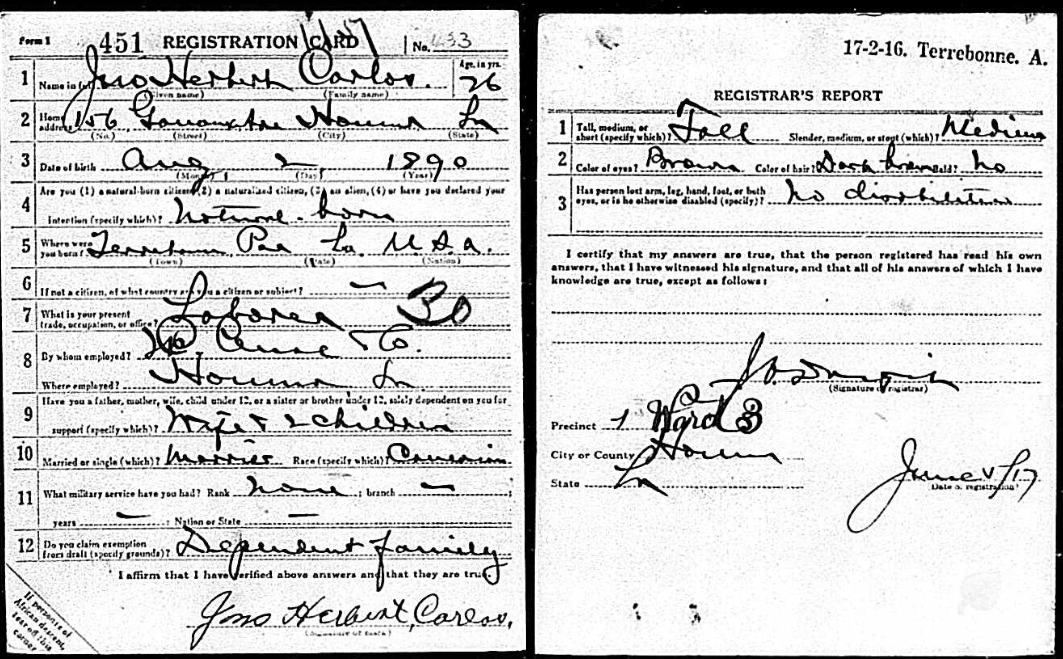 Form 1 451 REGISTRATION CARD No. 433
1 Name in full Jno Herbert Carlos. Age, in yrs. 26
(Given name) (Family name)
2 Home address 156 Houma La
(No.) (Street) (City) (State)
3 Date of birth Aug 2 1890
(Month) (Day) (Year)
Are you (1) a natural-born citizen, (2) a naturalized citizen, (3) an alien, (4) or have you declared your
4 intention (specify which)? Natural born
5 Where were you born? Terrebonne Par La U.S.A.
(Town) (State) (Nation)
6 If not a citizen, of what country are you a citizen or subject? —
7 What is your present trade, occupation, or office? Laborer 30
8 By whom employed? Co.
Where employed? Houma La
9 Have you a father, mother, wife, child under 12, or a sister or brother under 12, solely dependent on you for
support (specify which)? Wife & 2 children
10 Married or single (which)? Married Race (specify which)? Caucasian
11 What military service have you had? Rank none ; branch — ;
years — ; Nation or State —
12 Do you claim exemption from draft (specify grounds)? Dependent family
I affirm that I have verified above answers and that they are true.
Jno Herbert Carlos.
If person is of African descent, tear off this corner
17-2-16. Terrebonne. A.
REGISTRAR'S REPORT
1 Tall, medium, or short (specify which)? Tall Slender, medium, or stout (which)? Medium
2 Color of eyes? Brown Color of hair? Dark brown Bald? No
3 Has person lost arm, leg, hand, foot, or both eyes, or is he otherwise disabled (specify)? No disabilities
I certify that my answers are true, that the person registered has read his own
answers, that I have witnessed his signature, and that all of his answers of which I have
knowledge are true, except as follows:
(Signature of registrar)
Precinct 1 Ward 3
City or County Houma
State La
June 5/17
Date of registration